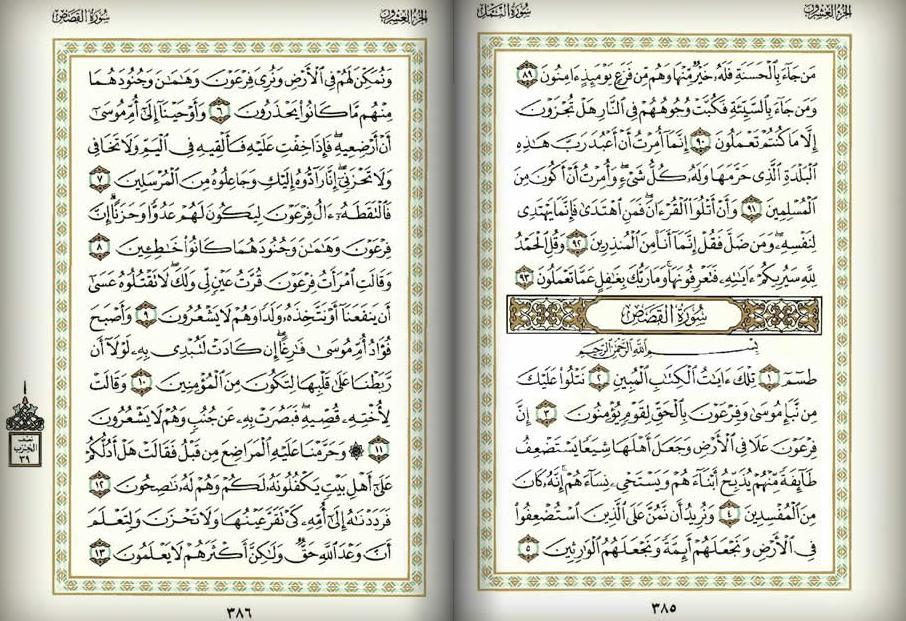 الجزء العشرون
سورة النمل
مَن جَآءَ بِٱلْحَسَنَةِ فَلَهُۥ خَيْرٌ مِّنْهَا وَهُم مِّن فَزَعٍ يَوْمَئِذٍ ءَامِنُونَ ٨٩
وَمَن جَآءَ بِٱلسَّيِّئَةِ فَكُبَّتْ وُجُوهُهُمْ فِى ٱلنَّارِ هَلْ تُجْزَوْنَ
إِلَّا مَا كُنتُمْ تَعْمَلُونَ ٩٠ إِنَّمَآ أُمِرْتُ أَنْ أَعْبُدَ رَبَّ هَٰذِهِ
ٱلْبَلْدَةِ ٱلَّذِى حَرَّمَهَا وَلَهُۥ كُلُّ شَىْءٍ ۖ وَأُمِرْتُ أَنْ أَكُونَ مِنَ
ٱلْمُسْلِمِينَ ٩١ وَأَنْ أَتْلُوَا۟ ٱلْقُرْءَانَ ۖ فَمَنِ ٱهْتَدَىٰ فَإِنَّمَا يَهْتَدِى
لِنَفْسِهِۦ ۖ وَمَن ضَلَّ فَقُلْ إِنَّمَآ أَنَا۠ مِنَ ٱلْمُنذِرِينَ ٩٢ وَقُلِ ٱلْحَمْدُ
لِلَّهِ سَيُرِيكُمْ ءَايَٰتِهِۦ فَتَعْرِفُونَهَا ۚ وَمَا رَبُّكَ بِغَٰفِلٍ عَمَّا تَعْمَلُونَ ٩٣
سورة القصص
بِسْمِ ٱللَّهِ ٱلرَّحْمَٰنِ ٱلرَّحِيمِ
طسٓمٓ ١ تِلْكَ ءَايَٰتُ ٱلْكِتَٰبِ ٱلْمُبِينِ ٢ نَتْلُوا۟ عَلَيْكَ
مِن نَّبَإِ مُوسَىٰ وَفِرْعَوْنَ بِٱلْحَقِّ لِقَوْمٍ يُؤْمِنُونَ ٣ إِنَّ
فِرْعَوْنَ عَلَا فِى ٱلْأَرْضِ وَجَعَلَ أَهْلَهَا شِيَعًا يَسْتَضْعِفُ
طَآئِفَةً مِّنْهُمْ يُذَبِّحُ أَبْنَآءَهُمْ وَيَسْتَحْىِۦ نِسَآءَهُمْ ۚ إِنَّهُۥ كَانَ
مِنَ ٱلْمُفْسِدِينَ ٤ وَنُرِيدُ أَن نَّمُنَّ عَلَى ٱلَّذِينَ ٱسْتُضْعِفُوا۟
فِى ٱلْأَرْضِ وَنَجْعَلَهُمْ أَئِمَّةً وَنَجْعَلَهُمُ ٱلْوَٰرِثِينَ ٥
٣٨٥
الجزء العشرون
سورة القصص
وَنُمَكِّنَ لَهُمْ فِى ٱلْأَرْضِ وَنُرِىَ فِرْعَوْنَ وَهَٰمَٰنَ وَجُنُودَهُمَا
مِنْهُم مَّا كَانُوا۟ يَحْذَرُونَ ٦ وَأَوْحَيْنَآ إِلَىٰٓ أُمِّ مُوسَىٰٓ
أَنْ أَرْضِعِيهِ ۖ فَإِذَا خِفْتِ عَلَيْهِ فَأَلْقِيهِ فِى ٱلْيَمِّ وَلَا تَخَافِى
وَلَا تَحْزَنِىٓ ۖ إِنَّا رَآدُّوهُ إِلَيْكِ وَجَاعِلُوهُ مِنَ ٱلْمُرْسَلِينَ ٧
فَٱلْتَقَطَهُۥٓ ءَالُ فِرْعَوْنَ لِيَكُونَ لَهُمْ عَدُوًّا وَحَزَنًا ۗ إِنَّ
فِرْعَوْنَ وَهَٰمَٰنَ وَجُنُودَهُمَا كَانُوا۟ خَٰطِـِٔينَ ٨
وَقَالَتِ ٱمْرَأَتُ فِرْعَوْنَ قُرَّتُ عَيْنٍ لِّى وَلَكَ ۖ لَا تَقْتُلُوهُ عَسَىٰٓ
أَن يَنفَعَنَآ أَوْ نَتَّخِذَهُۥ وَلَدًا وَهُمْ لَا يَشْعُرُونَ ٩ وَأَصْبَحَ
فُؤَادُ أُمِّ مُوسَىٰ فَٰرِغًا ۖ إِن كَادَتْ لَتُبْدِى بِهِۦ لَوْلَآ أَن
رَّبَطْنَا عَلَىٰ قَلْبِهَا لِتَكُونَ مِنَ ٱلْمُؤْمِنِينَ ١٠ وَقَالَتْ
لِأُخْتِهِۦ قُصِّيهِ ۖ فَبَصُرَتْ بِهِۦ عَن جُنُبٍ وَهُمْ لَا يَشْعُرُونَ
١١ ۞ وَحَرَّمْنَا عَلَيْهِ ٱلْمَرَاضِعَ مِن قَبْلُ فَقَالَتْ هَلْ أَدُلُّكُمْ
عَلَىٰٓ أَهْلِ بَيْتٍ يَكْفُلُونَهُۥ لَكُمْ وَهُمْ لَهُۥ نَٰصِحُونَ ١٢
فَرَدَدْنَٰهُ إِلَىٰٓ أُمِّهِۦ كَىْ تَقَرَّ عَيْنُهَا وَلَا تَحْزَنَ وَلِتَعْلَمَ
أَنَّ وَعْدَ ٱللَّهِ حَقٌّ وَلَٰكِنَّ أَكْثَرَهُمْ لَا يَعْلَمُونَ ١٣
نصف
الحزب
٣٩
٣٨٦